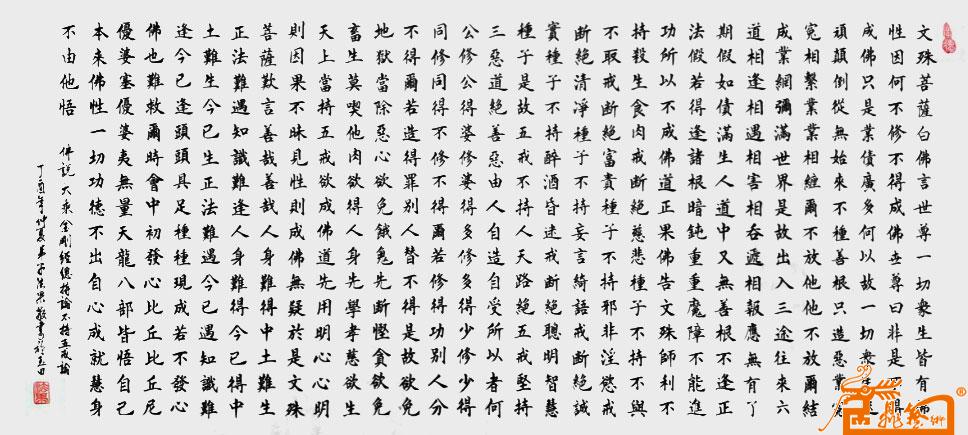 文殊菩薩白佛言世尊一切眾生皆有佛
性因何不修不得成佛世尊曰非是
成佛只是業債廣多何以故一切眾生迷
頑顛倒從無始來不種善根只造惡業冤
冤相繫業業相纏爾不放他他不放爾結
成業網彌滿世界是故出入三途往來六
道相逢相遇相害相吞歲相報應無有了
期假如債滿生人道中又無善根不逢正
法假若得逢諸根暗鈍重重魔障不能進
功所以不成佛道正果佛告文殊師利不
持殺生食肉戒斷絕慈悲種子不持不與
不取戒斷絕富貴種子不持邪非淫慾戒
斷絕清淨種子不持妄言綺語戒斷絕誠
實種子不持醉酒昏迷戒斷絕聰明智慧
種子是故五戒不持人天路絕五戒堅持
三惡道絕善惡由人自造自受所以者何
公修公得婆修婆得多修多得少修少得
同修同得不修不得爾若修得功別人分
不得爾若造得罪別人替不得是故欲免
地獄當除惡心欲免餓鬼先斷慳貪欲免
畜生莫喫他肉欲得為人先學孝慈欲生
天上當持五戒欲成佛道先用明心心明
則因果不昧見性則成佛無疑於是文殊
菩薩歎言善哉善哉人身難得中土難生
正法難遇知識難逢人身難得今已得中
土難生今已生正法難遇今已遇知識難
逢今已逢頭頭具足種種現成若不發心
佛也難救爾時會中初發心比丘比丘尼
優婆塞優婆夷無量天龍八部皆悟自己
本來佛性一切功德不出自心成就慧身
不由他悟
佛說大乘金剛經總持論不持五戒論
丁酉年仲夏